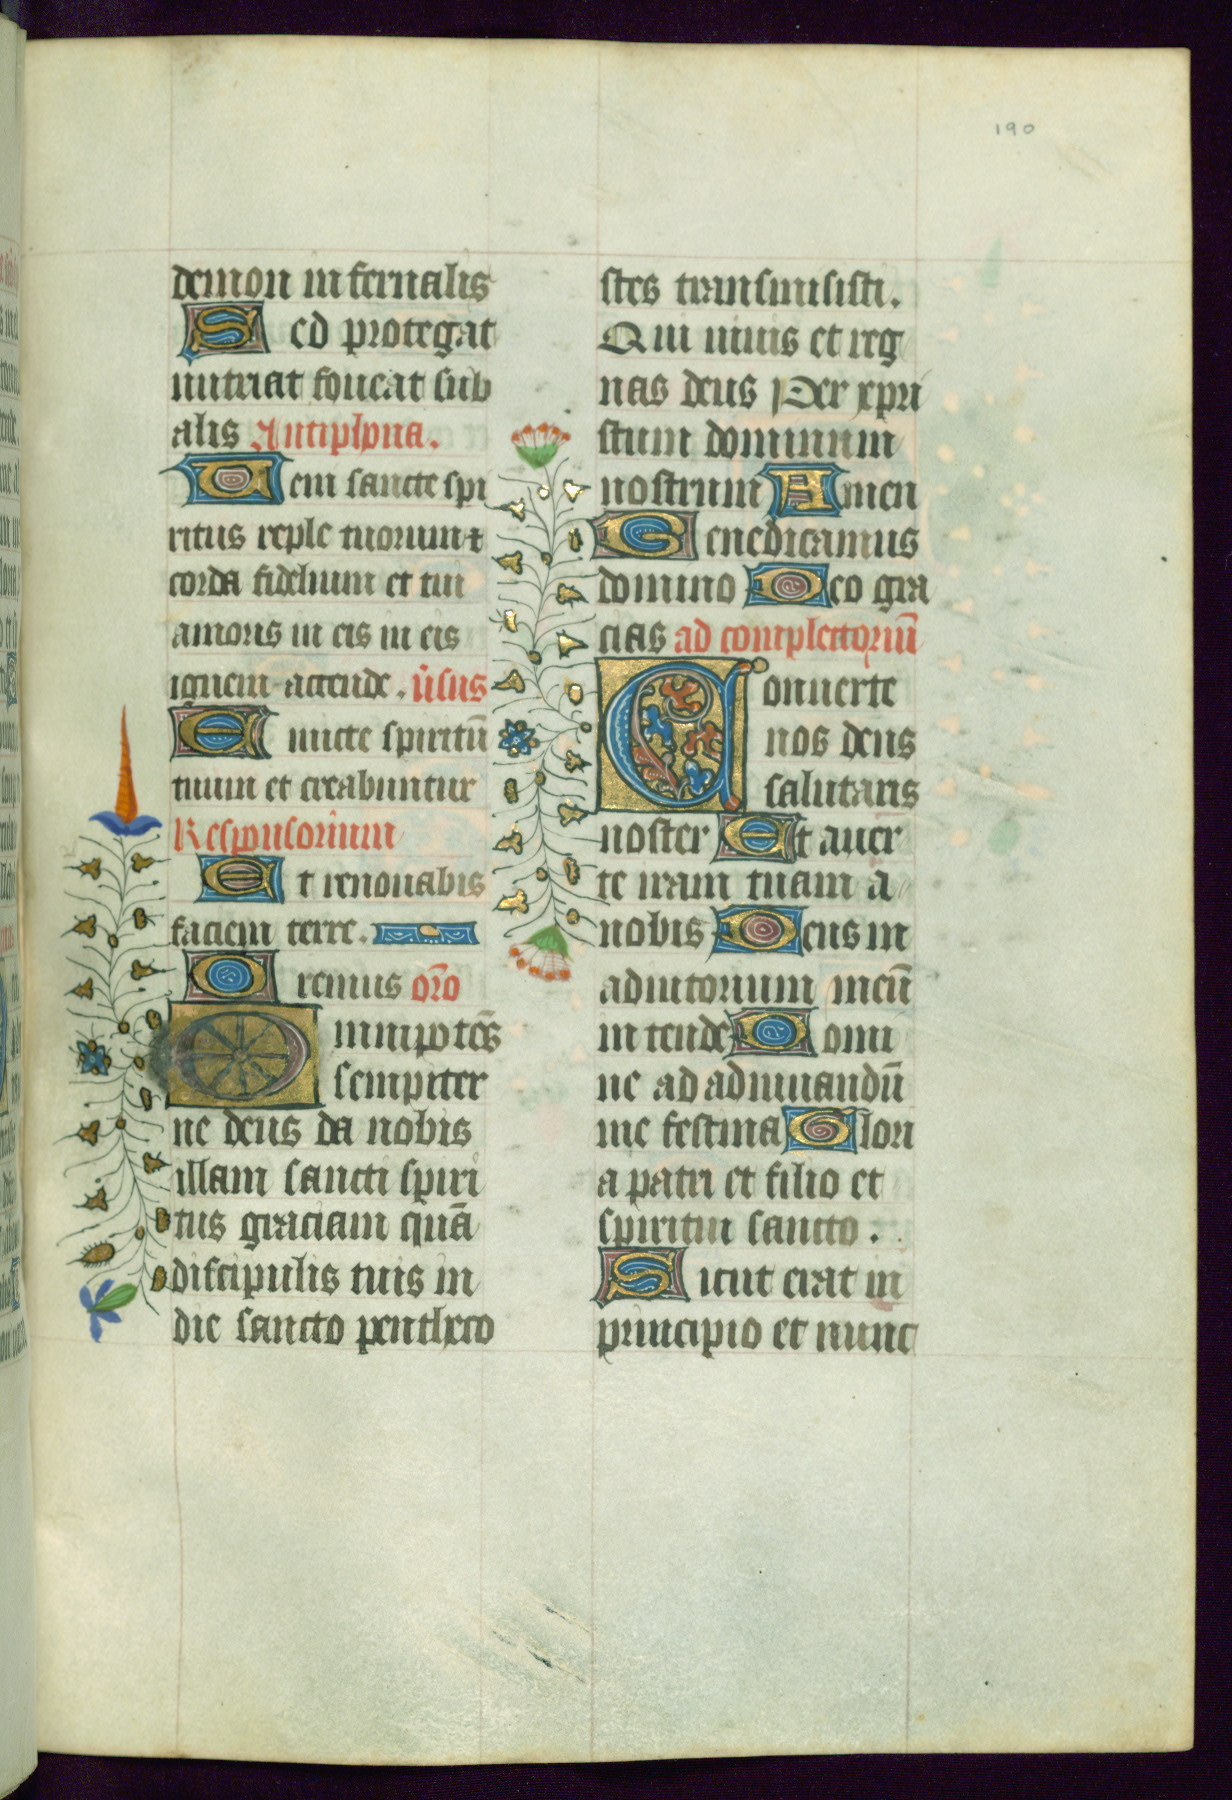 190
demon infernalis
Sed protegat
nutriat foueat sub
alis Antiphona.
Ueni sancte spi
ritus reple tuorum
corda fidelium et tui
amoris in eis in eis
ignem attende. v̄sus
Emitte spiritū
tuum et creabuntur
Responsorium
Et renouabis
faciem terre.
Oremus oro͞
Omnipotēs
sempiter
ne deus da nobis
illam sancti spiri
tus graciam quā
discipulis tuis in
die sancto pentheco
stes transmisisti.
Qui uiuis et reg
nas deus Per xpri
stum dominum
nostrum Amen
Benedicamus
domino Deo gra
cias ad complettoriū
Conuerte
nos deus
salutaris
noster Et auer
te iram tuam a
nobis Deus in
adiutorium meū
in tende Domi
ne ad adiuuandū
me festina Glori
a patri et filio et
spiritui sancto.
Sicut erat in
principio et nunc